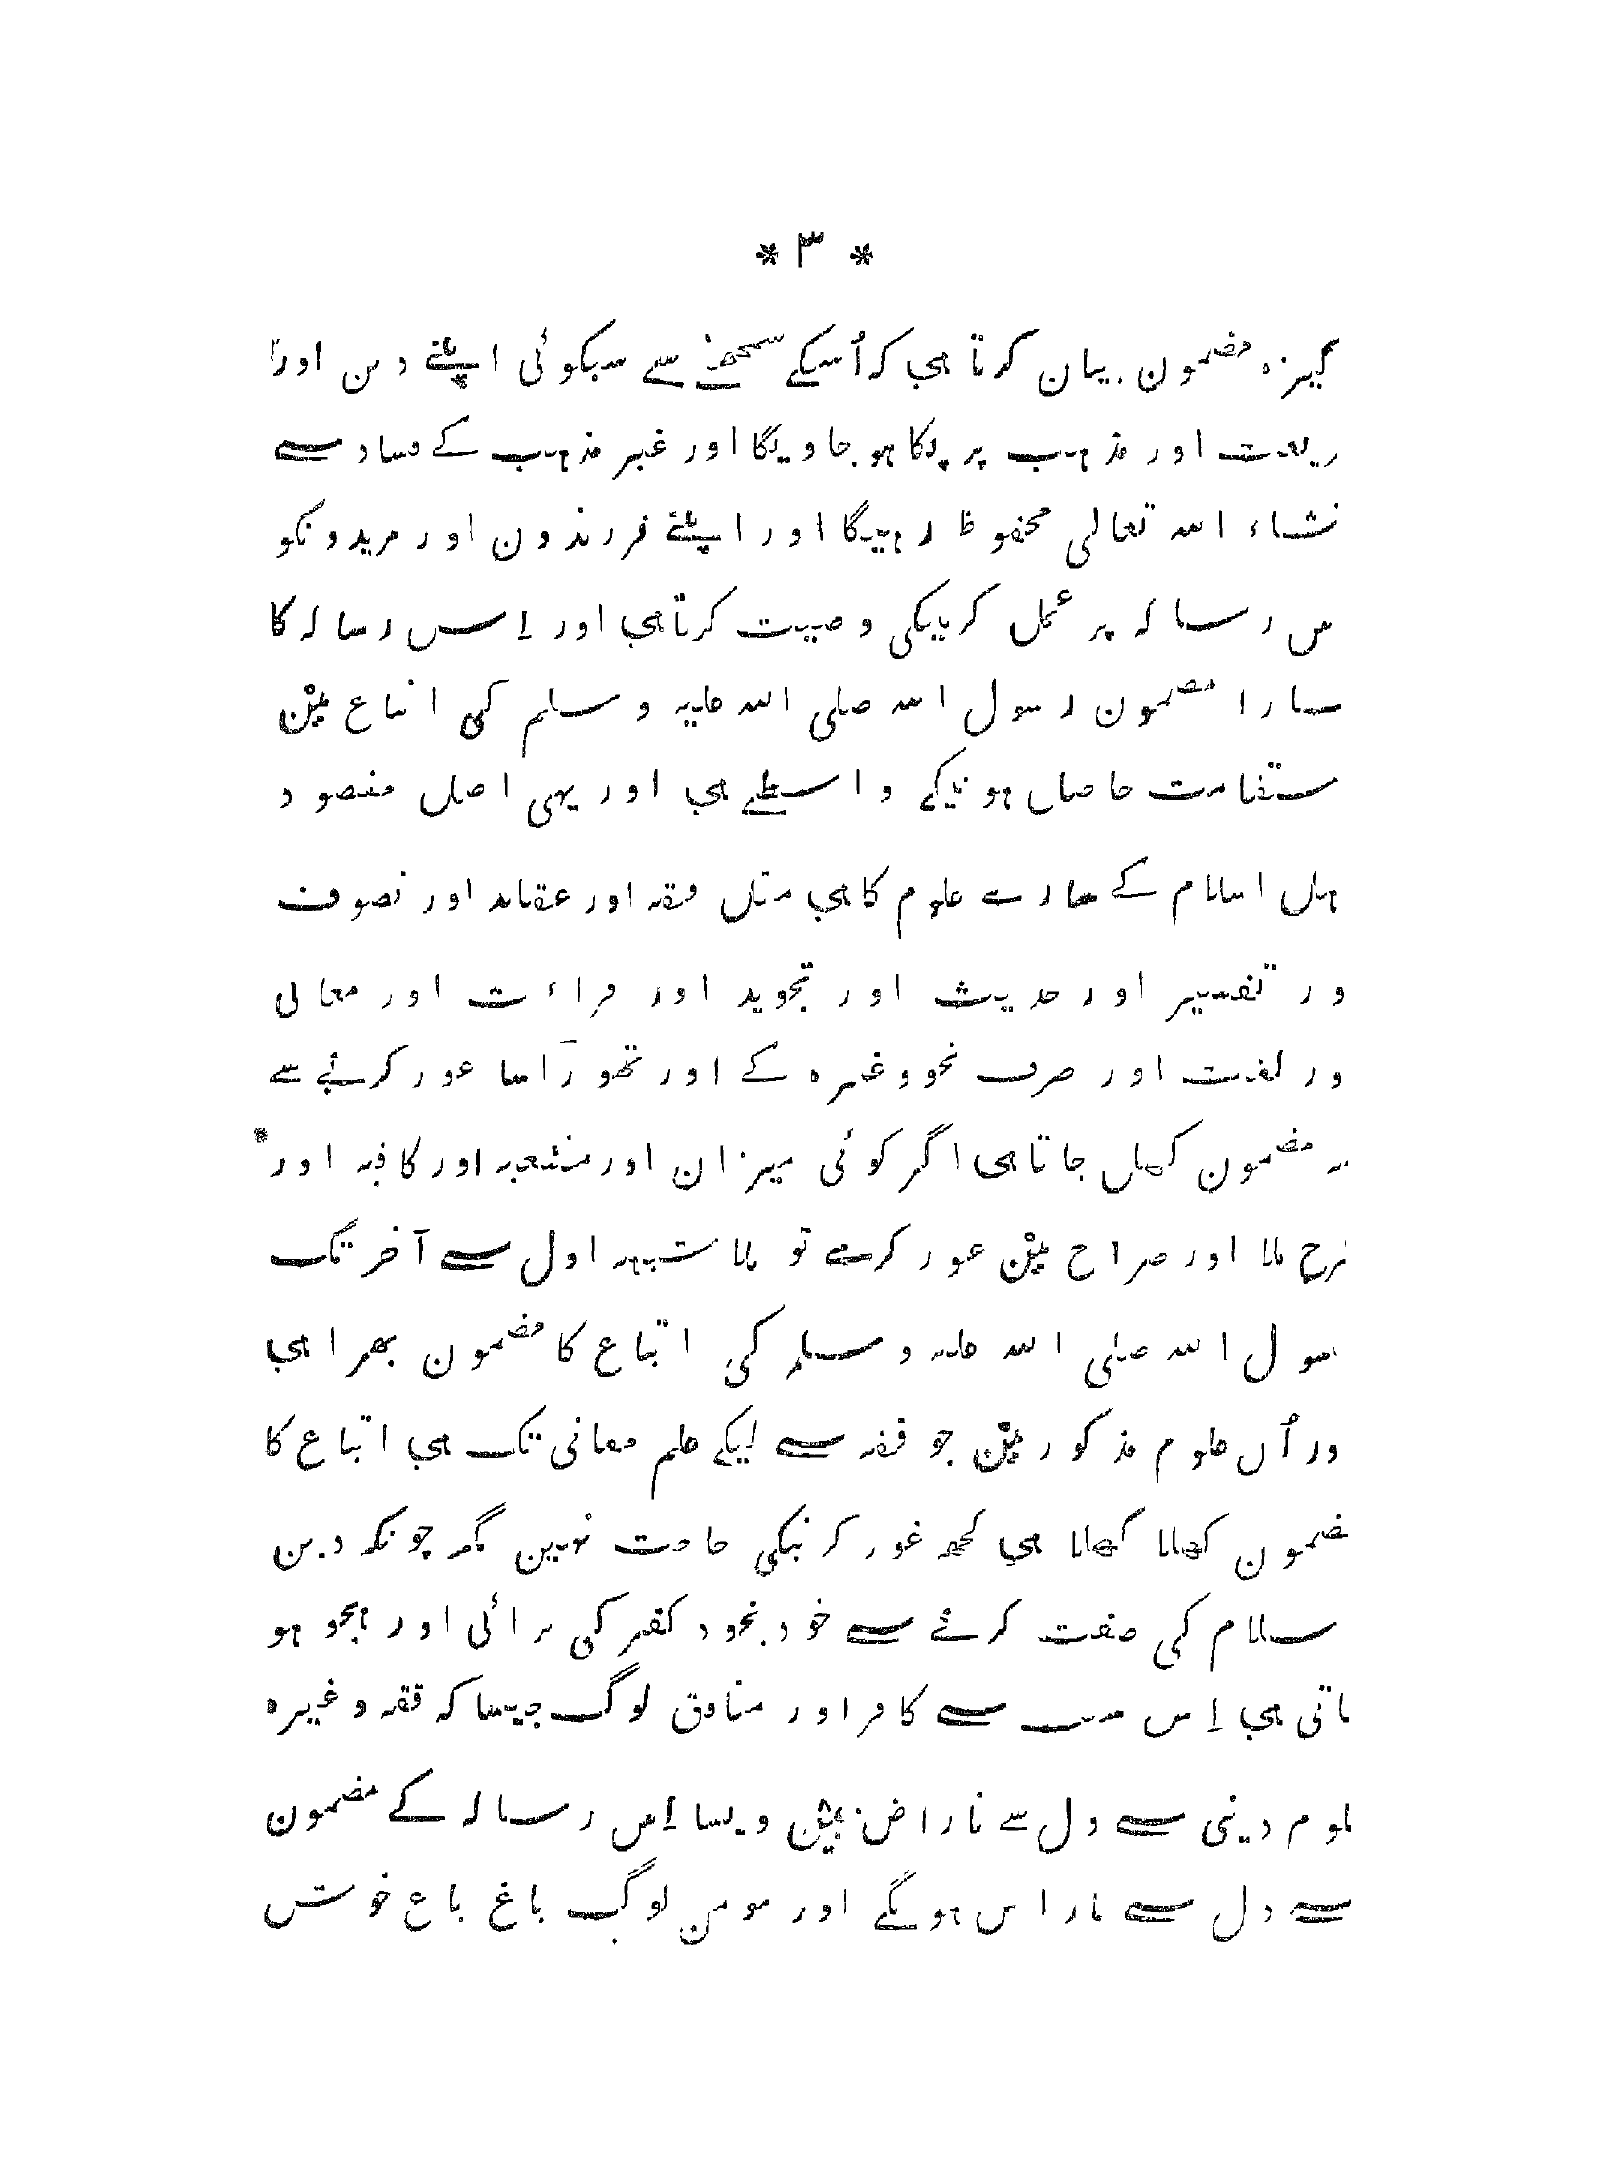 * ٣ *
گیزہ مضمون بیان کرتا ہی کہ اُسکے سمجھنے سے سبکوئی اپنے دین اور
ریعت اور مذہب پر پکا ہو جاویگا اور غیر مذہب کے فساد سے
نشاء اللہ تعالی محفوظ رہیگا اور اپنے فرزندون اور مریدونکو
س رسالہ پر عمل کرنیکی وصیت کرتا ہی اور اِس رسالہ کا
سارا مضمون رسول اللہ صلی اللہ علیہ وسلم کی اتباع مین
ستقامت حاصل ہونیکے واسطے ہی اور یہی اصل مقصود
ہل اسلام کے سارے علوم کا ہی مثل فقہ اور عقاید اور تصوف
ور تفسیر اور حدیث اور تجوید اور قراءت اور معانی
ور لغت اور صرف نحو وغیرہ کے اور تھوراسا غور کرنے سے
یہ مضمون کھل جاتا ہی اگر کوئی میزان اور منشعبہ اور کافیہ اور
شرح ملا اور صراح مین غور کرے تو بلا شبہہ اول سے آخر تک
سول اللہ صلی اللہ علیہ وسلم کی اتباع کا مضمون بھرا ہی
ور اُن علوم مذکور مین جو فقہ سے لیکے علم معانی تک ہی اتباع کا
ضمون کھلا کھلا ہی کچھ غور کرنیکی حاجت نہین مگر چونکہ دین
سلام کی صفت کرنے سے خود بخود کفر کی برائی اور ہجو ہو
اتی ہی اِس سبب سے کافر اور منافق لوگ جیسا کہ فقہ وغیرہ
لوم دینی سے دل سے ناراض ہین ویسا اِس رسالہ کے مضمون
سے دل سے ناراض ہونگے اور مومن لوگ باغ باغ خوش